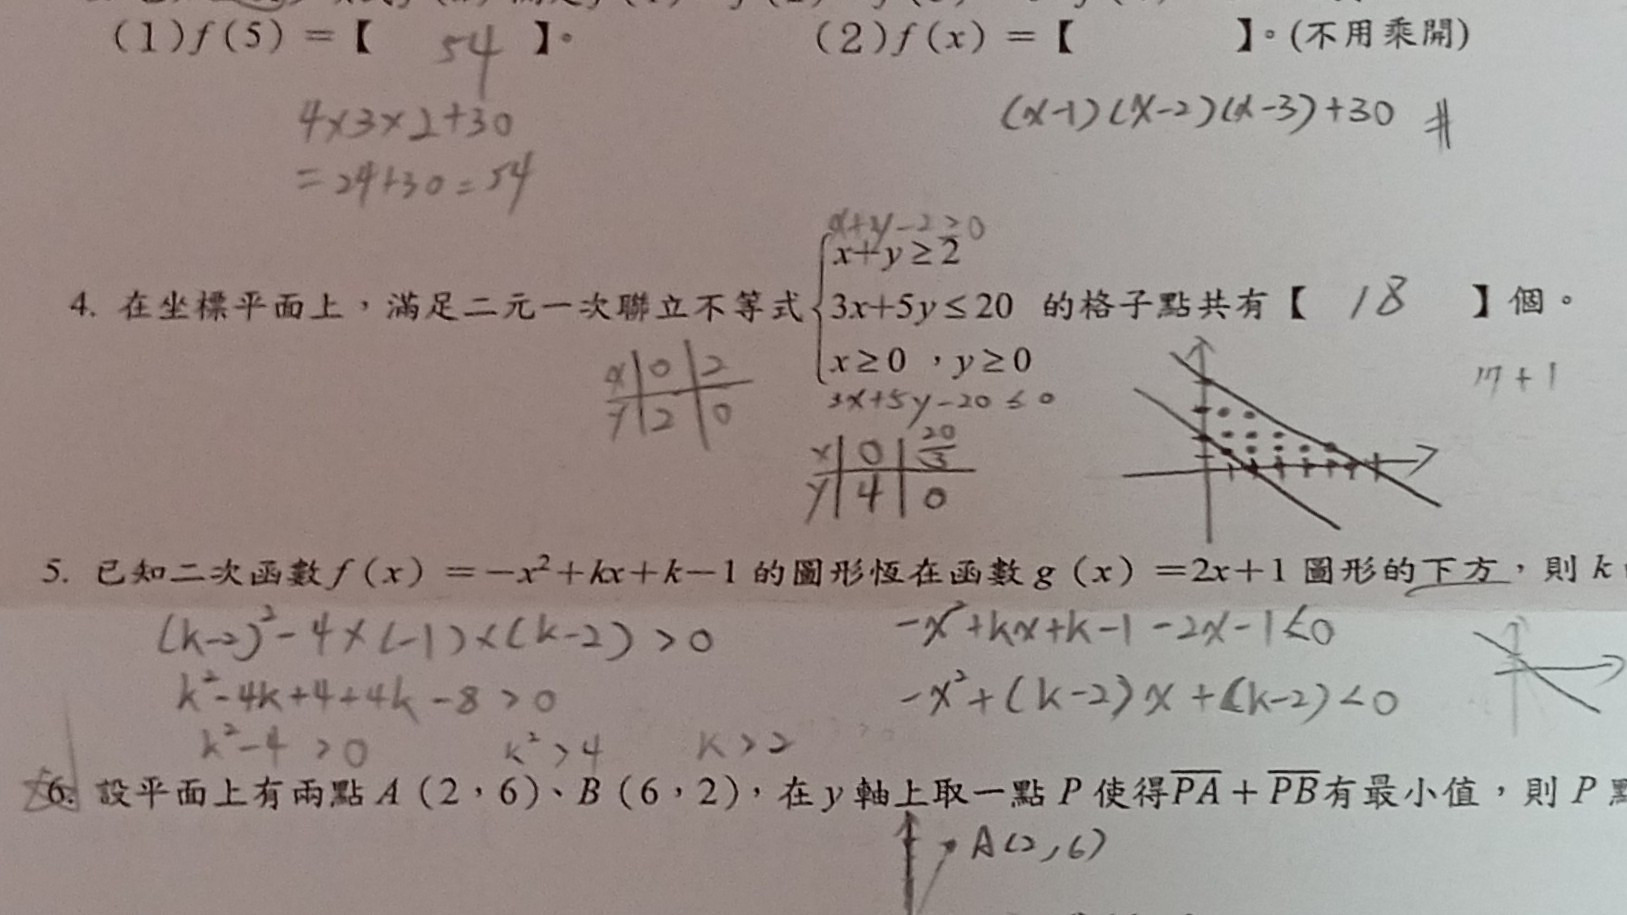 (1)f(5)=【 54 】。 (2)f(x)=【 】。(不用乘開)
4×3×2+30
=24+30=54
(x-1)(x-2)(x-3)+30 #
x+y-2≥0
x+y≥2
4. 在坐標平面上，滿足二元一次聯立不等式 3x+5y≤20 的格子點共有【 18 】個。
x≥0，y≥0
17+1
3x+5y-20≤0
x 0 2
y 2 0
x 0 20/3
y 4 0
5. 已知二次函數f(x)=-x²+kx+k-1的圖形恆在函數g(x)=2x+1圖形的下方，則k
(k-2)²-4×(-1)×(k-2)>0
-x²+kx+k-1-2x-1<0
k²-4k+4+4k-8>0
-x²+(k-2)x+(k-2)<0
k²-4>0 k²>4 k>2
6. 設平面上有兩點A(2，6)、B(6，2)，在y軸上取一點P使得PA+PB有最小值，則P
A(2,6)